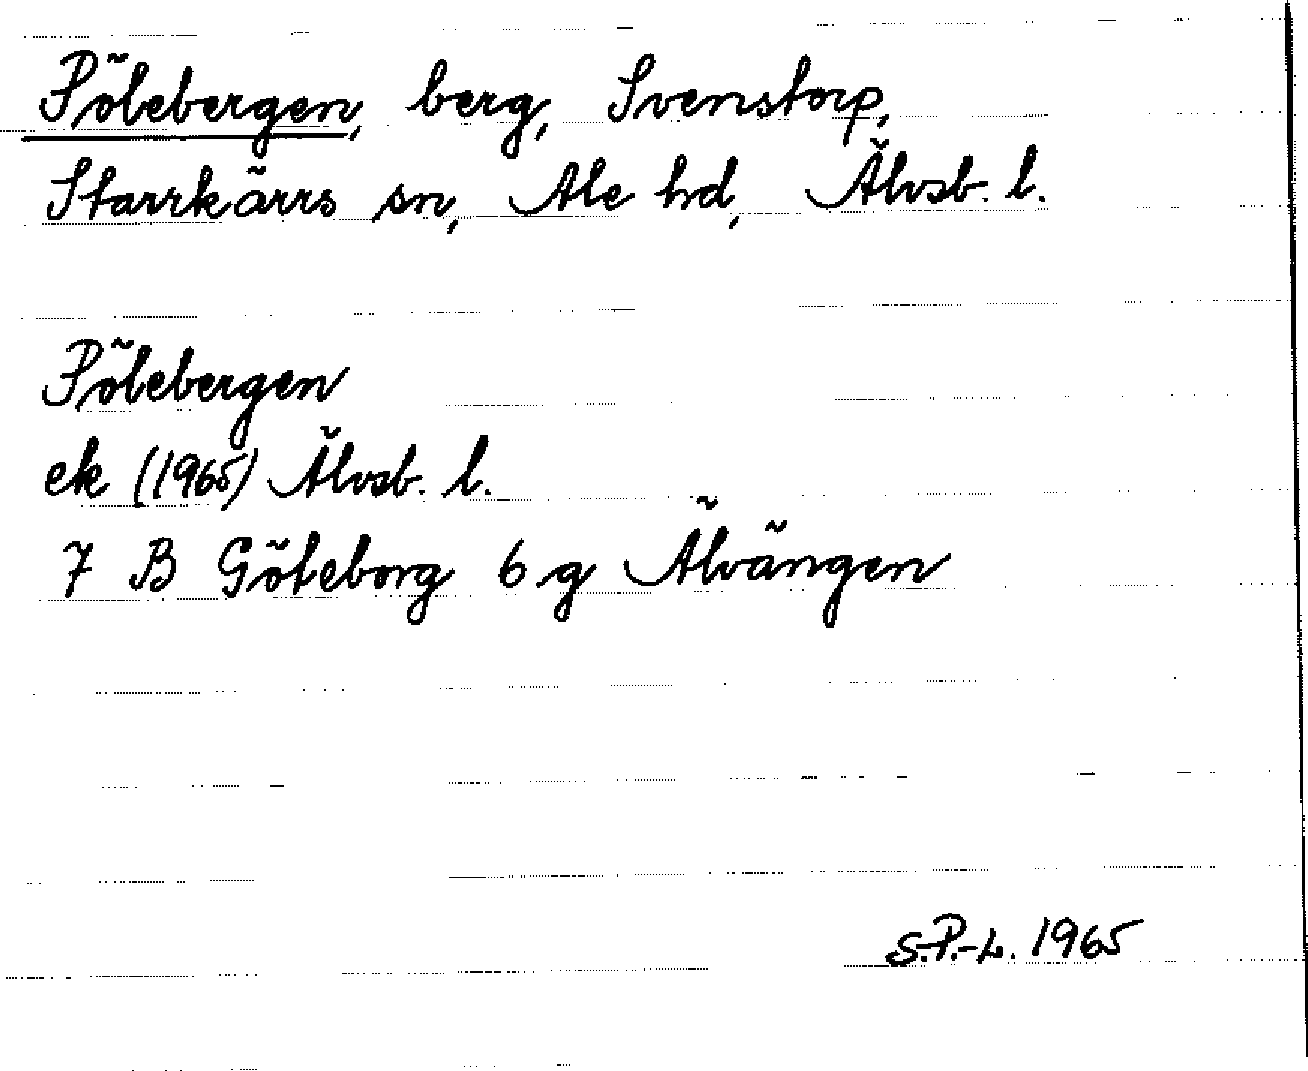 Pölebergen, berg, Svenstorp,
Starrkärrs sn, Ale hd, Älvsb. l.
Pölebergen
ek (1965) Älvsb. l.
7 B Göteborg 6 g Älvängen
S.P.-L. 1965